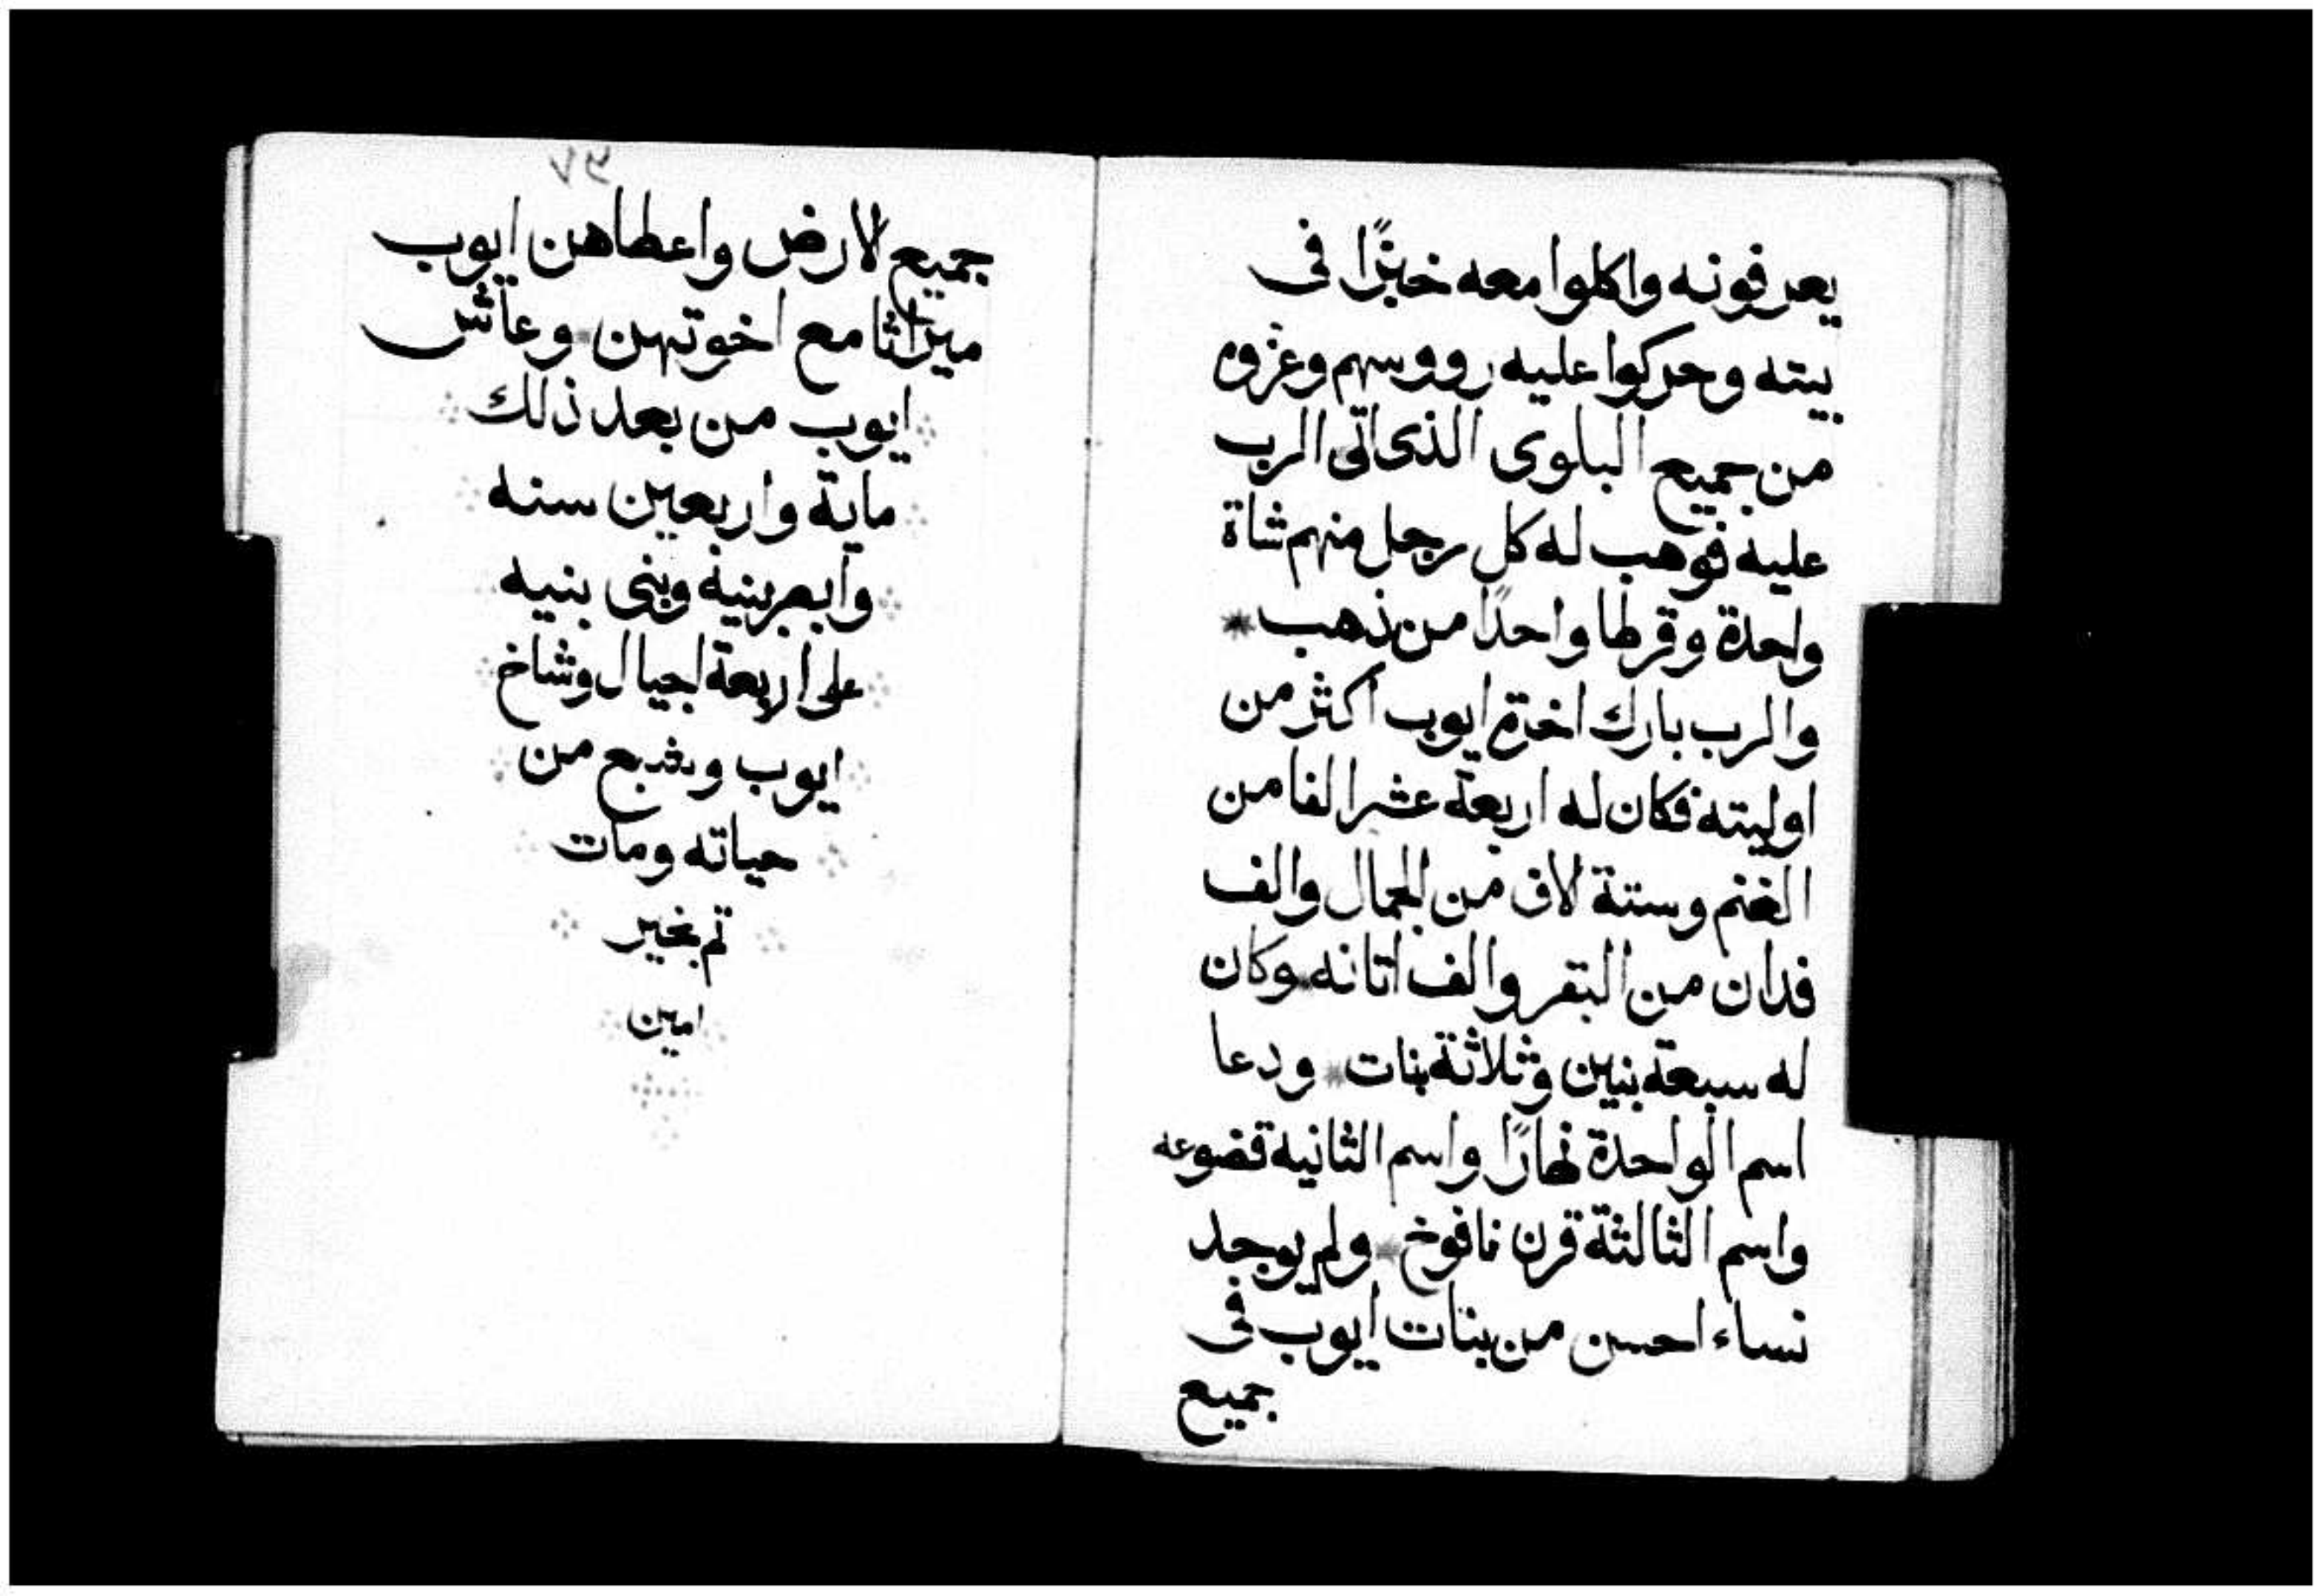 يعرفونه واكلوا معه خبزًا فى
بيته وحركوا عليه رووسهم وعزوه
من جميع البلوى الذى اتى الرب
عليه فوهب له كل رجل منهم شاة
واحدة وقرطا واحدًا من ذهب *
والرب بارك اخرة ايوب اكثر من
اوليته فكان له اربعة عشر الفا من
الغنم وستة الاف من الجمال والف
فدان من البقر والف اتانه * وكان
له سبعة بنين وثلاثة بنات * ودعا
اسم الواحدة نهارًا واسم الثانية قضوعه
واسم الثالثة قرن نافوخ * ولم يوجد
نساء احسن من بنات ايوب فى
جميع
جميع الارض واعطاهن ايوب
ميراثا مع اخوتهن * وعاش
ايوب من بعد ذلك
ماية واربعين سنه
وابصر بنية وبنى بنيه
على اربعة اجيال وشاخ
ايوب وشبع من
حياته ومات
تم بخير
امين